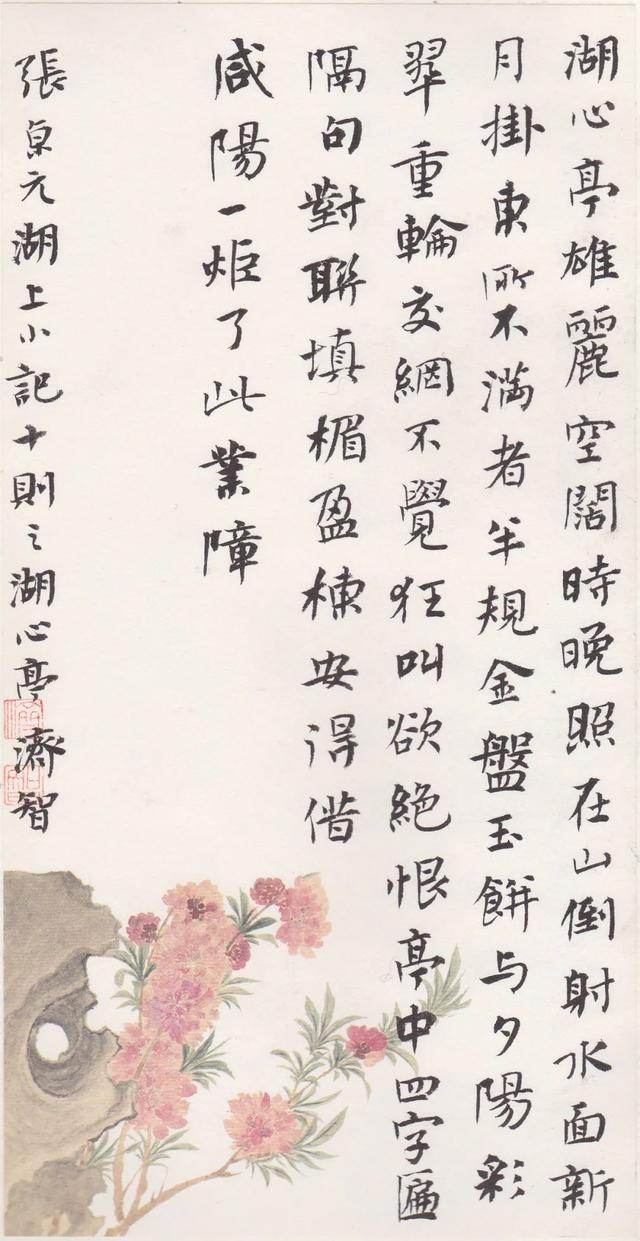 湖心亭雄麗空闊時晚照在山倒射水面新
月掛東所不滿者半規金盤玉餅与夕陽彩
翠重輪交網不覺狂叫欲絕恨亭中四字匾
隔句對聯填楣盈棟安得借
咸陽一炬了此業障
張京元湖上小記十則之湖心亭 濟智